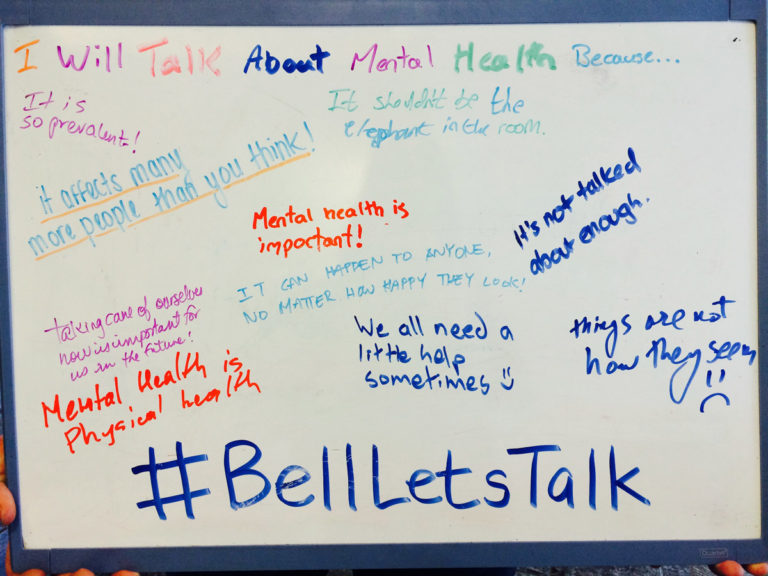 I Will Talk About Mental Health Because...
It is
so prevalent!
It shouldn't be the
elephant in the room.
it affects many
more people than you think!
Mental health is
important!
It's not talked
about enough.
IT CAN HAPPEN TO ANYONE,
NO MATTER HOW HAPPY THEY LOOK!
taking care of ourselves
now is important for
us in the future!
We all need a
little help
sometimes
things are not
how they seem
Mental Health is
Physical health
#BellLetsTalk
Quartet